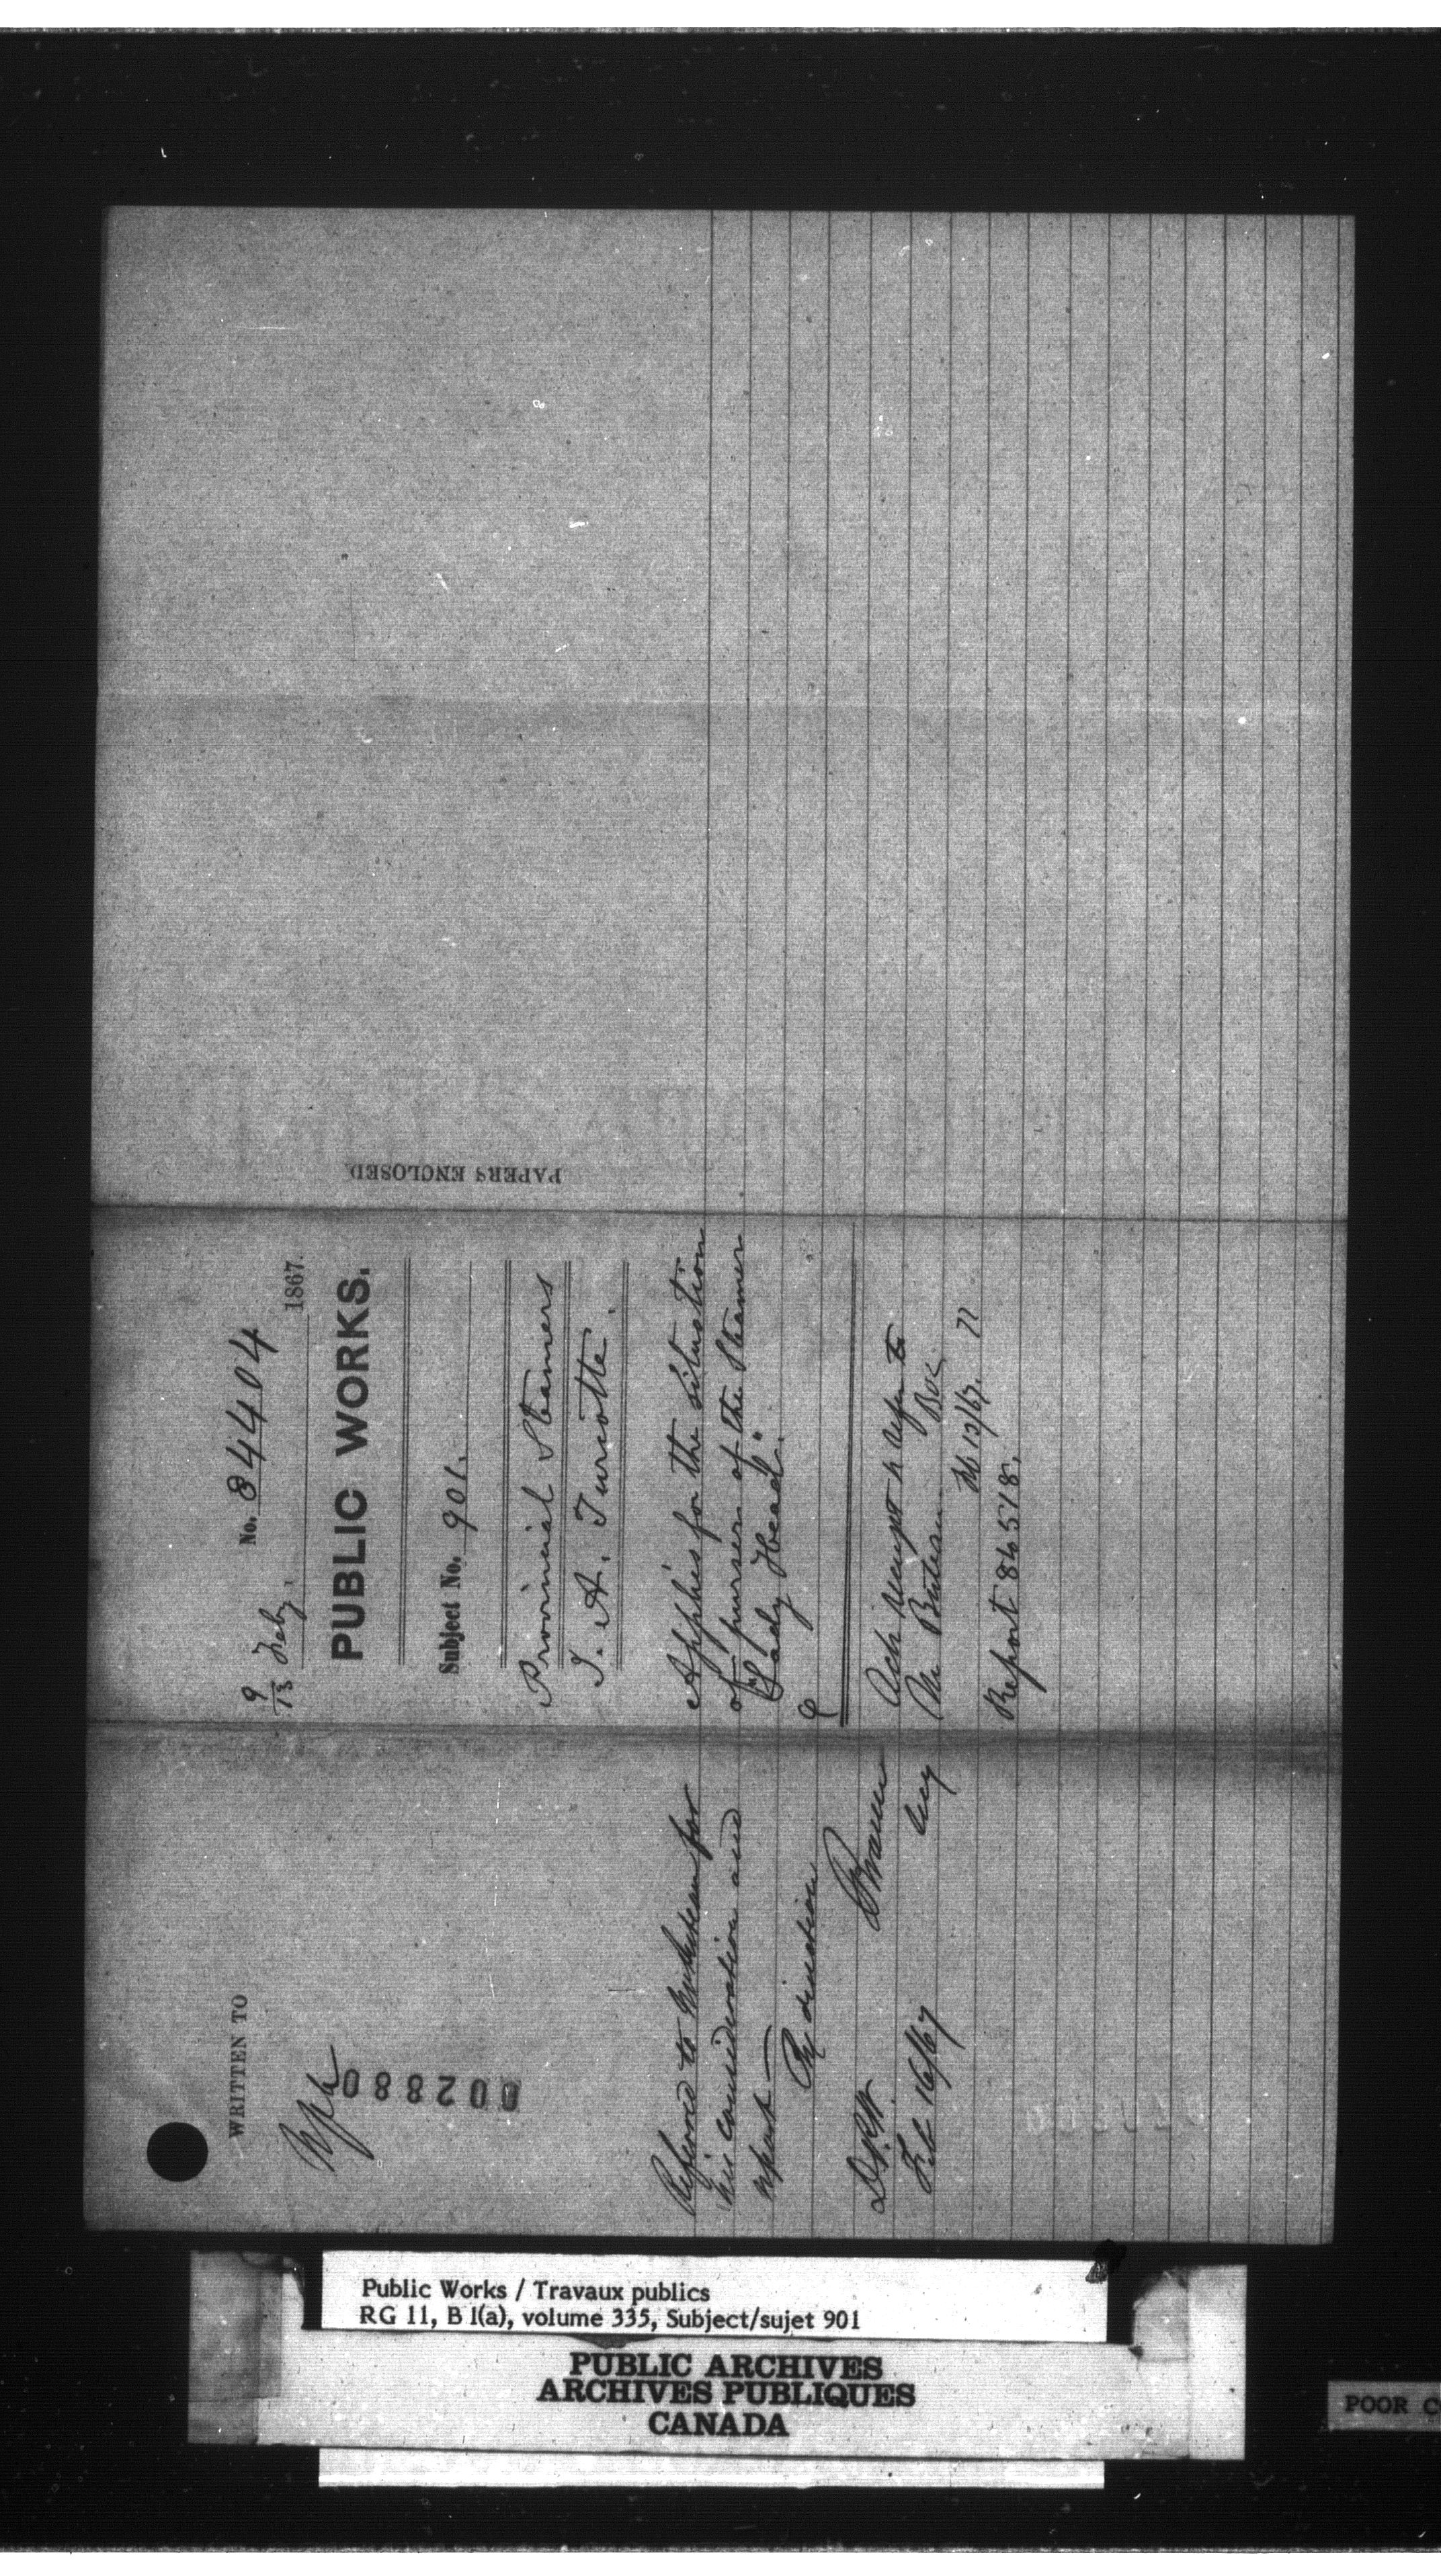 WRITTEN TO
002880
Referred to Mr Buteau for
his consideration and
report —
By direction
Braun
Secy
D.P.W.
Feb 16/67
9/13 Feby. 1867.
No. 84404
PUBLIC WORKS.
Subject No. 901.
Provincial Steamers
J. A. Turcotte.
Applies for the situation
of purser of the Steamer
"Lady Head".
Ack receipt & refer to
Mr Buteau.
Feb 13/67.
Report 84518.
PAPERS ENCLOSED
Public Works / Travaux publics
RG 11, B 1(a), volume 335, Subject/sujet 901
PUBLIC ARCHIVES
ARCHIVES PUBLIQUES
CANADA
POOR